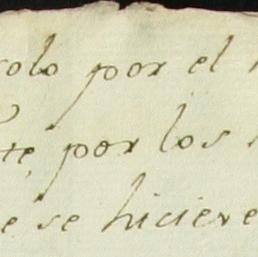 solo por el
te, por los
e se hiciere